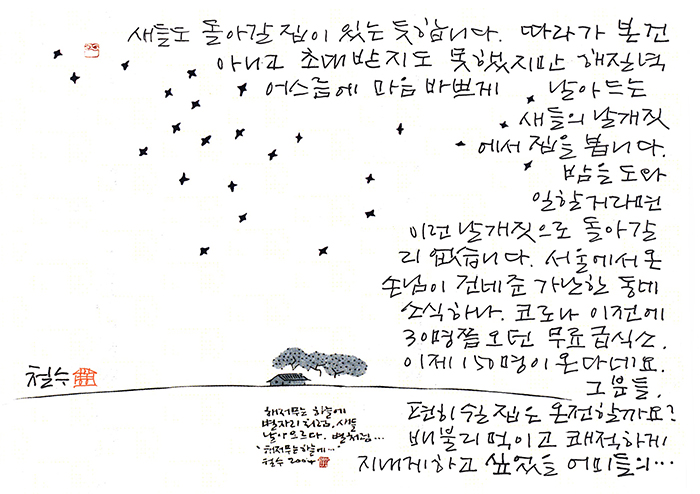 새들도 돌아갈 집이 있는 듯합니다. 따라가 본 건
아니고 초대받지도 못했지만 해질녘
어스름에 마음 바쁘게 날아드는
새들의 날개짓
에서 집을 봅니다.
밤을 도와
일할거라면
이런 날개짓으로 돌아갈
리 없습니다. 서울에서 온
손님이 건네준 가난한 동네
소식 하나. 코로나 이전에
30명쯤 오던 무료급식소.
이제 150명이 온다네요.
그분들,
편히 쉴 집은 온전할까요?
배불리 먹이고 쾌적하게
지내게 하고 싶었을 어미들의…
철수
해저무는 하늘에
별자리처럼, 새들
날아오르다. 별처럼…
"해저무는 하늘에…"
철수 2004